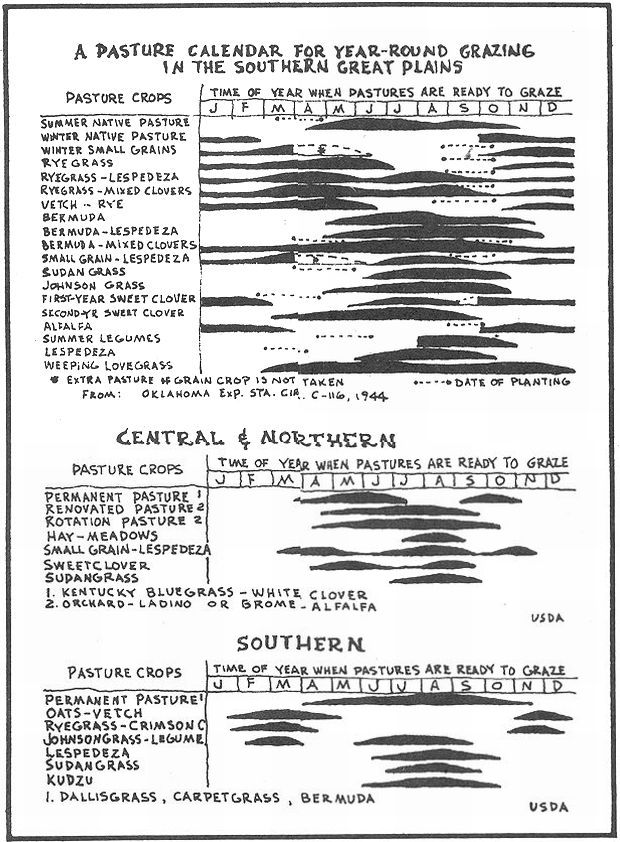 A PASTURE CALENDAR FOR YEAR-ROUND GRAZING
IN THE SOUTHERN GREAT PLAINS
PASTURE CROPS
TIME OF YEAR WHEN PASTURES ARE READY TO GRAZE
J F M A M J J A S O N D
SUMMER NATIVE PASTURE
WINTER NATIVE PASTURE
WINTER SMALL GRAINS
RYE GRASS
RYEGRASS-LESPEDEZA
RYEGRASS-MIXED CLOVERS
VETCH - RYE
BERMUDA
BERMUDA-LESPEDEZA
BERMUDA-MIXED CLOVERS
SMALL GRAIN-LESPEDEZA
SUDAN GRASS
JOHNSON GRASS
FIRST-YEAR SWEET CLOVER
SECOND-YR SWEET CLOVER
ALFALFA
SUMMER LEGUMES
LESPEDEZA
WEEPING LOVEGRASS
* EXTRA PASTURE IF GRAIN CROP IS NOT TAKEN
DATE OF PLANTING
FROM: OKLAHOMA EXP. STA. CIR. C-116, 1944
CENTRAL & NORTHERN
PASTURE CROPS
TIME OF YEAR WHEN PASTURES ARE READY TO GRAZE
J F M A M J J A S O N D
PERMANENT PASTURE 1
RENOVATED PASTURE 2
ROTATION PASTURE 2
HAY-MEADOWS
SMALL GRAIN-LESPEDEZA
SWEETCLOVER
SUDANGRASS
1. KENTUCKY BLUEGRASS - WHITE CLOVER
2. ORCHARD-LADINO OR BROME-ALFALFA
USDA
SOUTHERN
PASTURE CROPS
TIME OF YEAR WHEN PASTURES ARE READY TO GRAZE
J F M A M J J A S O N D
PERMANENT PASTURE 1
OATS-VETCH
RYEGRASS-CRIMSON C
JOHNSONGRASS-LEGUME
LESPEDEZA
SUDANGRASS
KUDZU
1. DALLISGRASS, CARPETGRASS, BERMUDA
USDA